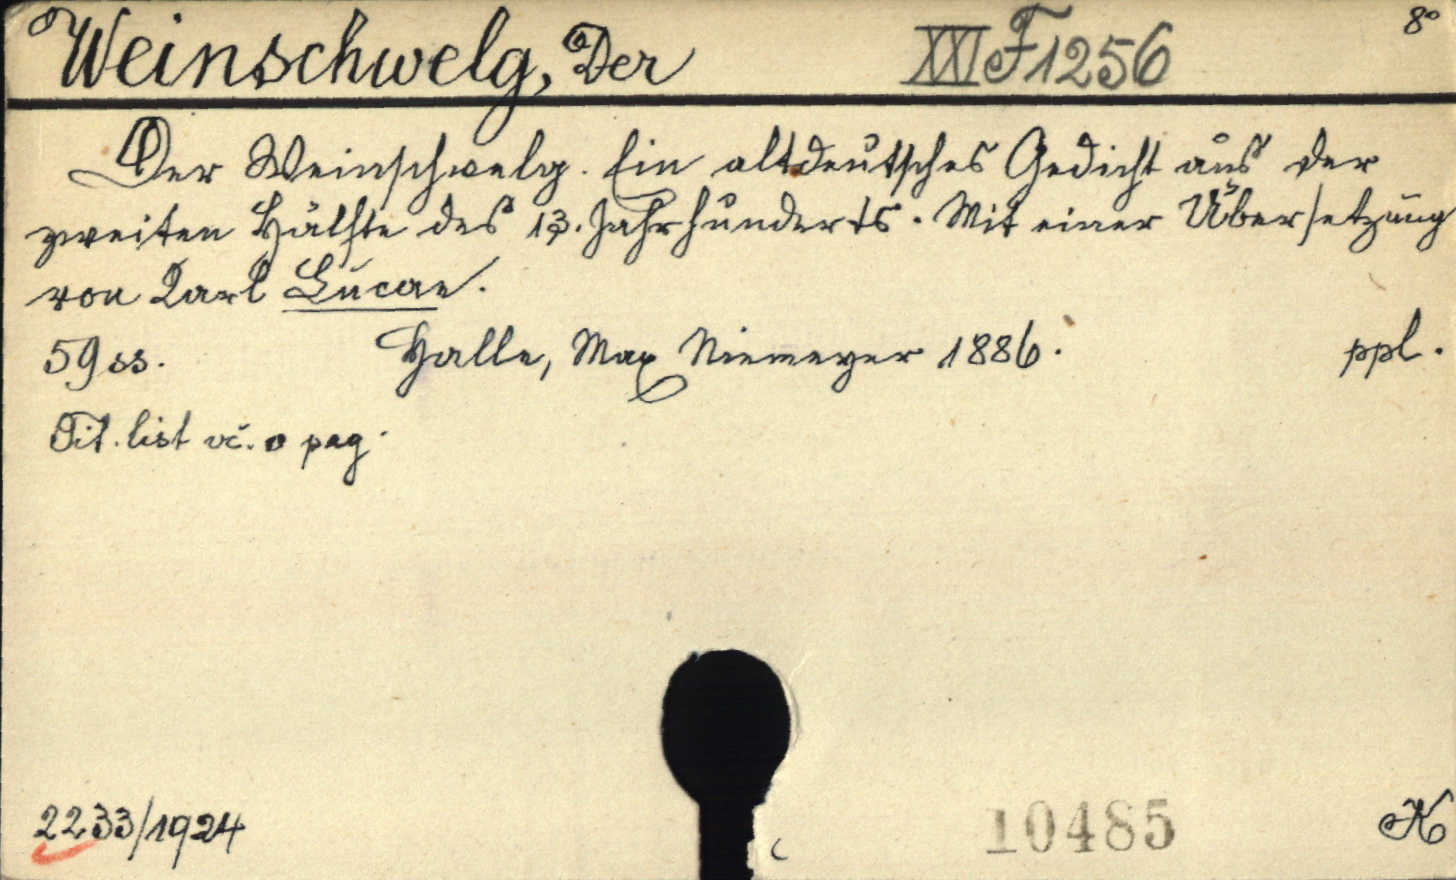 Weinschwelg, Der XXI F 1256 8°
Der Weinschwelg. Ein altdeutsches Gedicht aus der
zweiten Hälfte des 13. Jahrhunderts. Mit einer Übersetzung
von Karl Lucae.
59 ss. Halle, Max Niemeyer 1886. ppl.
Tit. list vč. o pag.
2233/1924 10485 K